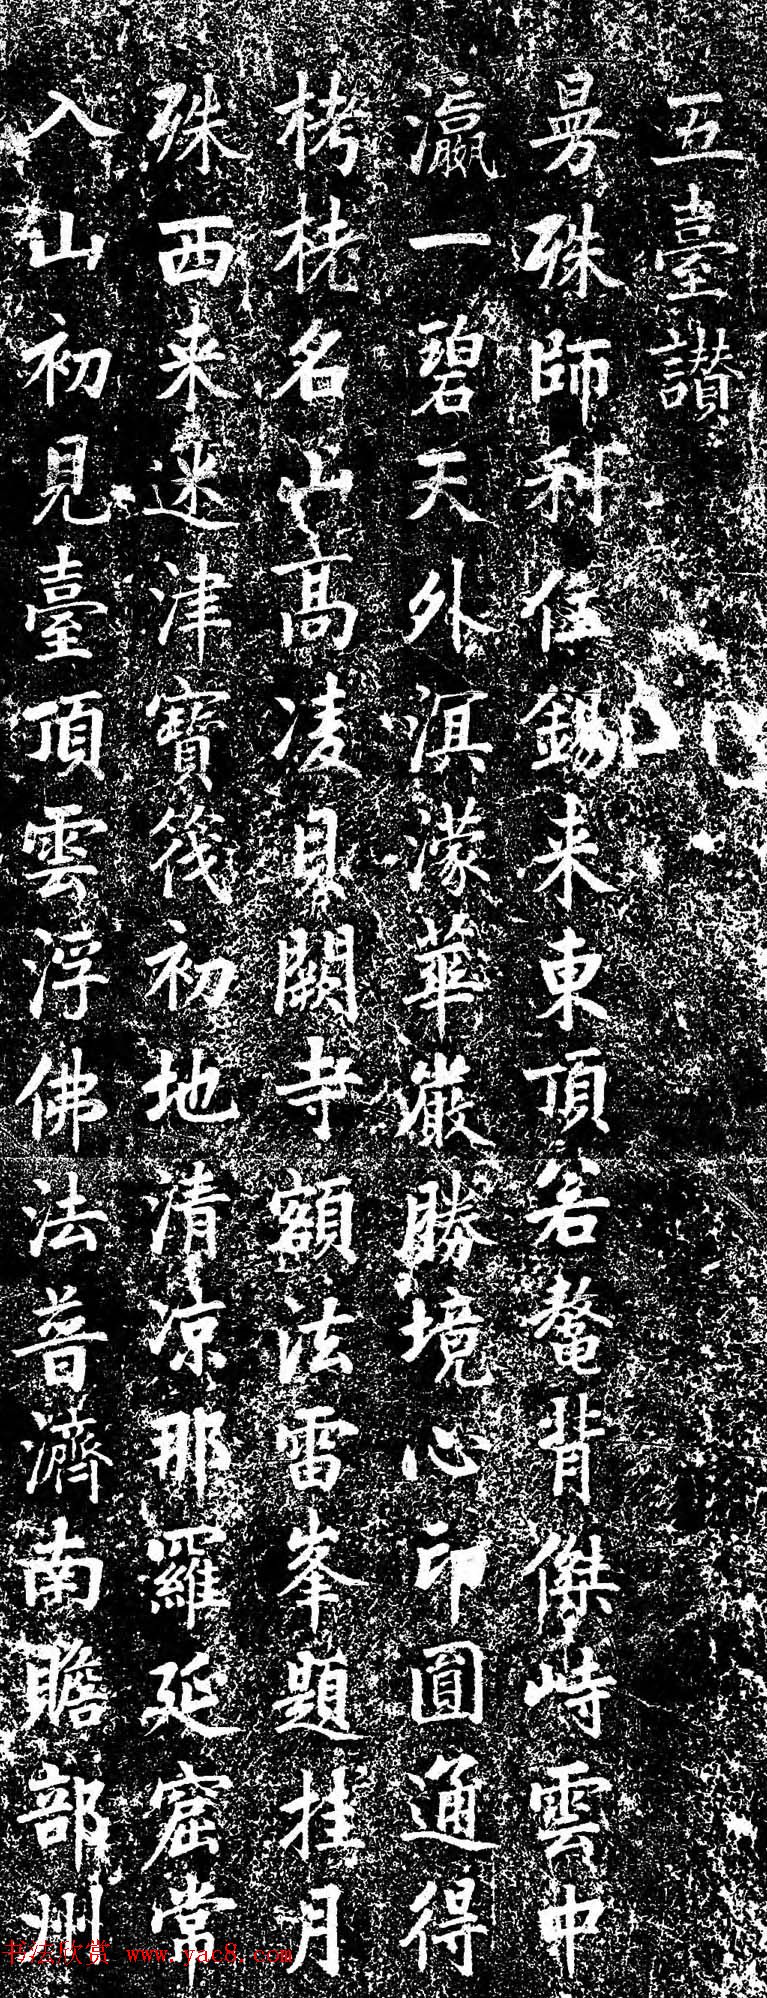 五臺讃
曼殊師利住錫来東頂若鼇背傑峙雲中
瀛一碧天外溟濛華巖勝境心印圓通得
栲栳名山高凌貝闕寺額法雷峯題挂月
殊西来迷津寶筏初地清凉那羅延窟常
入山初見臺頂雲浮佛法普濟南瞻部州
书法欣赏 www.yac8.com